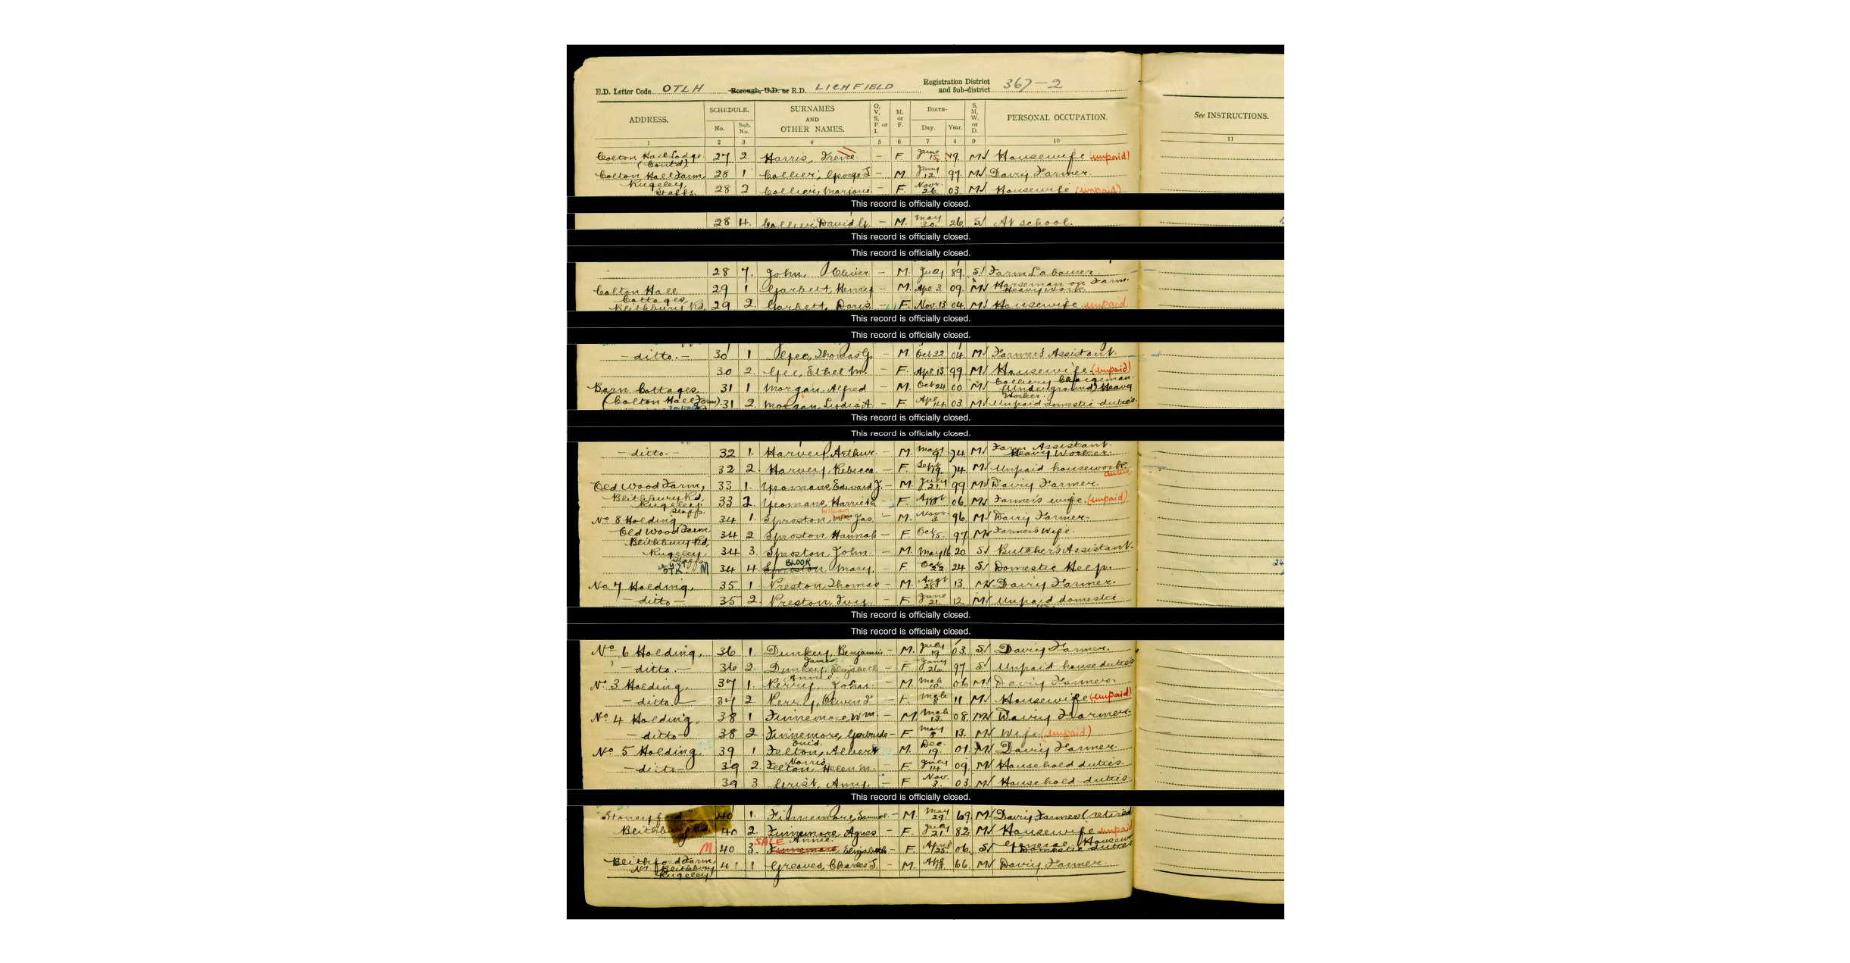 E.D. Letter Code OTLH Borough, U.D. or R.D. LICHFIELD Registration District and Sub-district 367-2
ADDRESS. SCHEDULE. No. Sub. No. SURNAMES AND OTHER NAMES. O, V, S, P, or I. M. or F. BIRTH- Day. Year. S, M, W, or D. PERSONAL OCCUPATION. See INSTRUCTIONS.
1 2 3 4 5 6 7 8 9 10 11
Colton Hall Lodge (Contd) 27 2 Harris, Irene - F June 15 M Housewife (unpaid)
Colton Hall Farm 28 1 Collier, George - M 12 97 M Dairy Farmer
Rugeley Staffs 28 2 Collier, Marjorie - F Nov 26 03 M Housewife (unpaid)
This record is officially closed.
28 4 Collier, David - M May 26 S At school.
This record is officially closed.
This record is officially closed.
28 7. John, Oliver - M. July 89 S Farm Labourer
Colton Hall 29 1 Garbett, Henry - M. Apr 3 09 M Horseman on Farm Heavy work
Cottages Blithbury Rd. 29 2. Garbett, Doris - F. Nov. 15 04 M Housewife unpaid
This record is officially closed.
This record is officially closed.
- ditto. - 30 1 Thomas G. - M. Oct 22 04 M Farmer's Assistant
30 2. Ethel M. - F. Apr 15 99 M Housewife (unpaid)
Barn Cottages 31 1 Morgan, Alfred - M. Oct 24 00 M Colliery Underground Heavy Worker
(Colton Hall Farm) 31 2. Morgan, Lydia A - F. 03 M Unpaid domestic duties
This record is officially closed.
This record is officially closed.
- ditto. - 32 1. Harvey, Arthur - M. 74 M Farm Assistant Heavy Worker
32 2. Harvey, Rebecca - F. 74 M Unpaid housework
Old Wood Farm, 33 1. Yeomans, Edward J. - M. July 21 99 M Dairy Farmer.
Blithbury Rd. Rugeley Staffs. 33 2. Yeomans, Harriet - F 06 M Farmer's wife (unpaid)
No 8 Holding 34 1. Sproston, William Jas - M. Nov. 96 M Dairy Farmer
Old Wood Farm Blithbury Rd. 34 2 Sproston, Hannah - F Oct 97 M Farmer's Wife
Rugeley 34 3 Sproston, John - M. May 16 20 S Butcher's Assistant.
34 4. Sproston BLOOR Mary - F Oct 22 24 S Domestic Help.
No 7 Holding. 35 1 Preston, Thomas - M. Augt 13. M Dairy Farmer.
- ditto - 35 2 Preston, Ivy - F June 21 12. M Unpaid domestic
This record is officially closed.
This record is officially closed.
No 6 Holding. 36 1 Dunkey, Benjamin - M. July 19 03 S Dairy Farmer.
- ditto. - 36 2. Elizabeth - F 26 97 S Unpaid house duties
No 3 Holding. 37 1. Perry, John - M 06 M Dairy Farmer
- ditto - 37 2 Perry, - F. 11 M. Housewife (unpaid)
No 4 Holding. 38 1 Finnemore, Wm - M. 08 M Dairy Farmer
- ditto - 38 2 Finnemore, Gertrude - F May 13. M Wife (unpaid)
No 5 Holding 39 1 Felton, Albert M. Dec. 19. 01. M Dairy Farmer
- ditto - 39 2. Felton, Helen M. - F July 09. M Household duties
39 3 Grist, Amy - F Nov. 03 M Household duties
This record is officially closed.
40 1. Finnemore, Samuel - M. May 29 69 M Dairy Farmer (retired
40 2. Finnemore, Agnes - F. July 21 82 M Housewife unpaid
M 40 3. Finnemore SALE Annie Elizabeth - F April 06. S
Blithford Farm, Nr Blithbury Rugeley 41 1 Greaves, Charles - M. 66 M Dairy Farmer